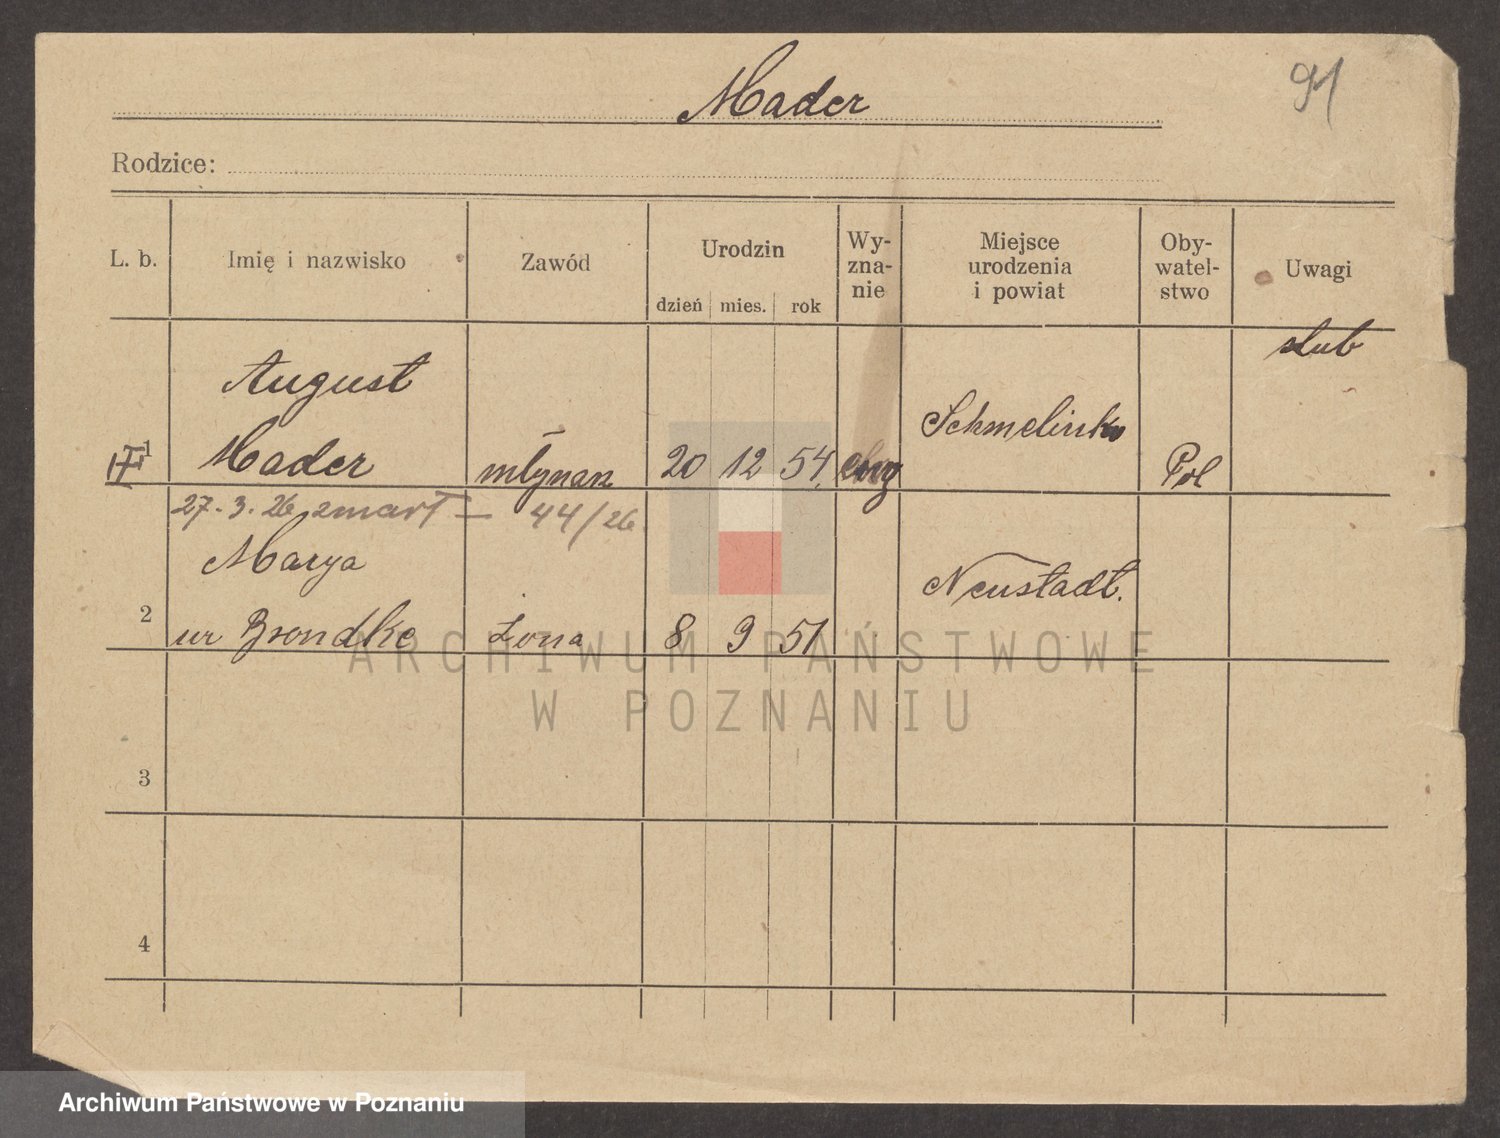 Mader
91
Rodzice:
L. b.
Imię i nazwisko
Zawód
Urodzin
dzień mies. rok
Wy-
zna-
nie
Miejsce
urodzenia
i powiat
Oby-
watel-
stwo
Uwagi
slub
August
1 Mader młynarz 20 12 54 ewg Schmelinko Pol
27.3.26 zmarł — 44/26
Marya
2 ur Brondke Żona 8 9 51 Neustadt.
3
4
ARCHIWUM PAŃSTWOWE
W POZNANIU
Archiwum Państwowe w Poznaniu